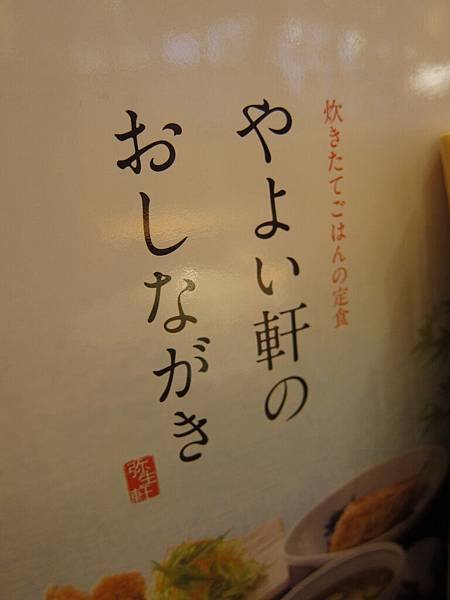 炊きたてごはんの定食
やよい軒の
おしながき
弥生軒